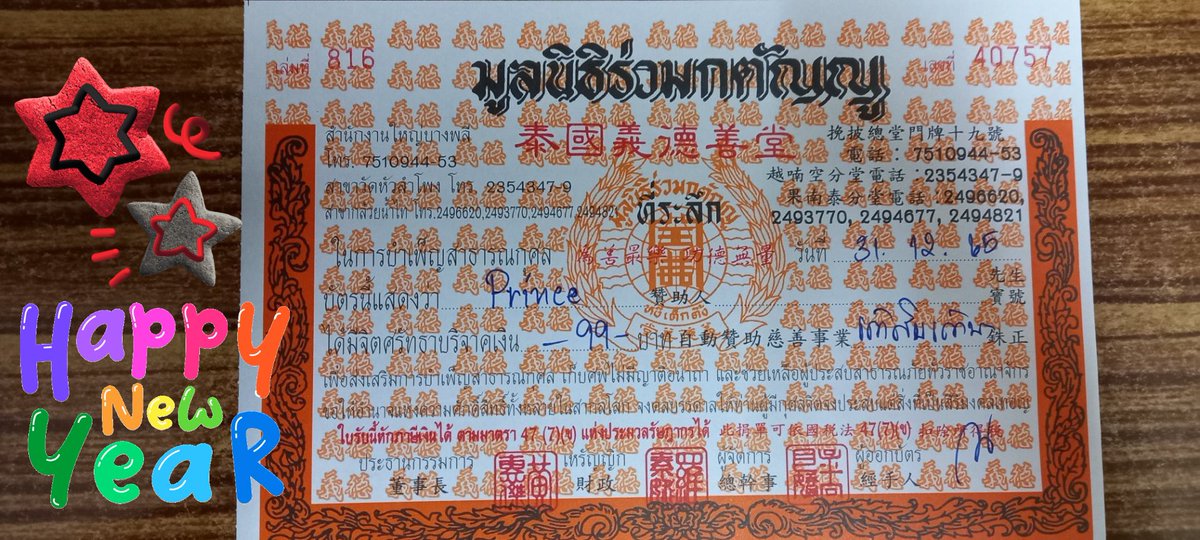 เล่มที่ 816
เลขที่ 40757
มูลนิธิร่วมกตัญญู
泰國義德善堂
สำนักงานใหญ่บางพลี
โทร. 7510944-53
สาขาวัดหัวลำโพง โทร. 2354347-9
สาขากล้วยน้ำไท โทร.2496620,2493770,2494677,2494821
挽披總堂門牌十九號
電話：7510944-53
越喃空分堂電話：2354347-9
果南泰分堂電話：2496620,
2493770, 2494677, 2494821
ที่ระลึก
ในการบำเพ็ญสาธารณกุศล
為善最樂 功德無量
วันที่ 31. 12. 65
บัตรนี้แสดงว่า Prince 贊助人 先生 寶號
ได้มีจิตศรัทธาบริจาคเงิน -99- บาท 自動贊助慈善事業 เก้าสิบเก้าบาท 銖正
เพื่อส่งเสริมการบำเพ็ญสาธารณกุศล เก็บศพไม่มีญาติอนาถา และช่วยเหลือผู้ประสบสาธารณภัยทั่วราชอาณาจักร
ขอให้อำนาจแห่งความศักดิ์สิทธิ์ทั้งหลายในสากลโลก จงดลบันดาลให้ท่านผู้มีกุศลจิตจงประสบแต่สิ่งที่เป็นสิริมงคลเทอญ
ใบรับนี้หักภาษีเงินได้ ตามมาตรา 47 (7)(ข) แห่งประมวลรัษฎากรได้ 此捐單可依國税法 47(7)(ข)
ประธานกรรมการ
董事長
เหรัญญิก
財政
ผู้จัดการ
總幹事
ผู้ออกบัตร
經手人
Happy
New
Year